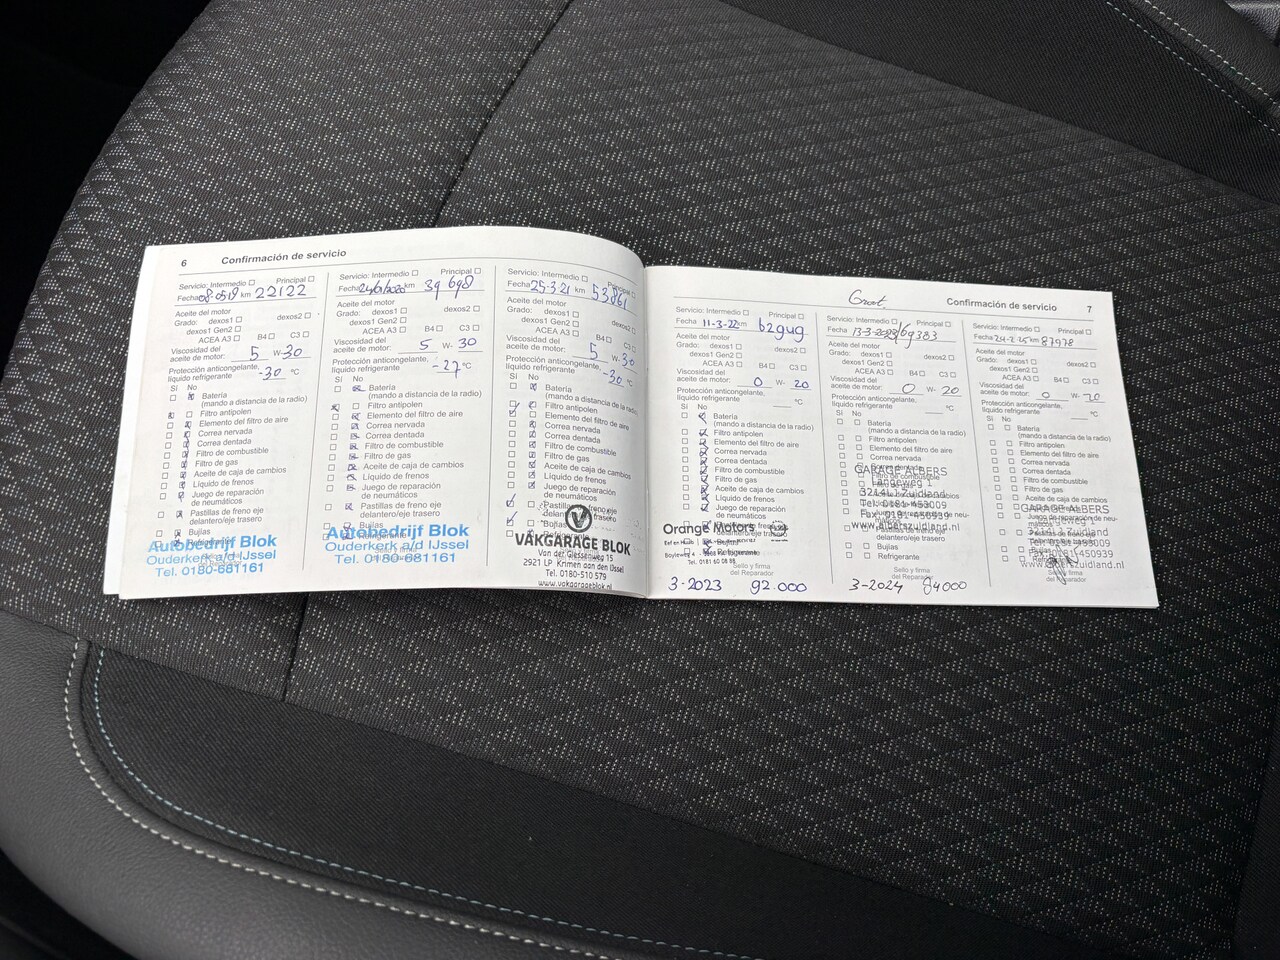 6 Confirmación de servicio
Servicio: Intermedio Principal
Fecha 08-0519 km 22122
Aceite del motor
Grado: dexos1 dexos2
dexos1 Gen2
ACEA A3 B4 C3
Viscosidad del
aceite de motor: 5 W- 30
Protección anticongelante,
líquido refrigerante -30 °C
Sí No
Batería
(mando a distancia de la radio)
Filtro antipolen
Elemento del filtro de aire
Correa nervada
Correa dentada
Filtro de combustible
Filtro de gas
Aceite de caja de cambios
Líquido de frenos
Juego de reparación
de neumáticos
Pastillas de freno eje
delantero/eje trasero
Bujías
Autobedrijf Blok
Ouderkerk a/d IJssel
Tel. 0180-681161
Servicio: Intermedio Principal
Fecha km 39698
Aceite del motor
Grado: dexos1 dexos2
dexos1 Gen2
ACEA A3 B4 C3
Viscosidad del
aceite de motor: 5 W- 30
Protección anticongelante,
líquido refrigerante -27 °C
Sí No
Batería
(mando a distancia de la radio)
Filtro antipolen
Elemento del filtro de aire
Correa nervada
Correa dentada
Filtro de combustible
Filtro de gas
Aceite de caja de cambios
Líquido de frenos
Juego de reparación
de neumáticos
Pastillas de freno eje
delantero/eje trasero
Bujías
Autobedrijf Blok
Ouderkerk a/d IJssel
Tel. 0180-681161
Servicio: Intermedio Principal
Fecha 25-3-21 km 53861
Aceite del motor
Grado: dexos1 dexos2
dexos1 Gen2
ACEA A3 B4 C3
Viscosidad del
aceite de motor: 5 W- 30
Protección anticongelante,
líquido refrigerante -30 °C
Sí No
Batería
(mando a distancia de la radio)
Filtro antipolen
Elemento del filtro de aire
Correa nervada
Correa dentada
Filtro de combustible
Filtro de gas
Aceite de caja de cambios
Líquido de frenos
Juego de reparación
de neumáticos
Pastillas de freno eje
delantero/eje trasero
Bujías
VAKGARAGE BLOK
Van der Giessenweg 15
2921 LP Krimpen aan den IJssel
Tel. 0180-510 579
www.vakgarageblok.nl
Groot
Confirmación de servicio 7
Servicio: Intermedio Principal
Fecha 11-3-22 km 62949
Aceite del motor
Grado: dexos1 dexos2
dexos1 Gen2
ACEA A3 B4 C3
Viscosidad del
aceite de motor: 0 W- 20
Protección anticongelante,
líquido refrigerante °C
Sí No
Batería
(mando a distancia de la radio)
Filtro antipolen
Elemento del filtro de aire
Correa nervada
Correa dentada
Filtro de combustible
Filtro de gas
Aceite de caja de cambios
Líquido de frenos
Juego de reparación
de neumáticos
Orange Motors
Refrigerante
Sello y firma
del Reparador
3-2023 92.000
Servicio: Intermedio Principal
Fecha 13-3-2023 69383
Aceite del motor
Grado: dexos1 dexos2
dexos1 Gen2
ACEA A3 B4 C3
Viscosidad del
aceite de motor: 0 W- 20
Protección anticongelante,
líquido refrigerante °C
Sí No
Batería
(mando a distancia de la radio)
Filtro antipolen
Elemento del filtro de aire
Correa nervada
GARAGE ALBERS
Langeweg 1
3214LJ Zuidland
Tel: 0181-453009
Fax: 0181-450939
www.alberszuidland.nl
delantero/eje trasero
Bujías
Refrigerante
Sello y firma
del Reparador
3-2024 84000
Servicio: Intermedio Principal
Fecha 24-2-25 km 87978
Aceite del motor
Grado: dexos1 dexos2
dexos1 Gen2
ACEA A3 B4 C3
Viscosidad del
aceite de motor: 0 W- 20
Protección anticongelante,
líquido refrigerante °C
Sí No
Batería
(mando a distancia de la radio)
Filtro antipolen
Elemento del filtro de aire
Correa nervada
Correa dentada
Filtro de combustible
Filtro de gas
Aceite de caja de cambios
Líquido de frenos
GARAGE ALBERS
www.alberszuidland.nl
Sello y firma
del Reparador